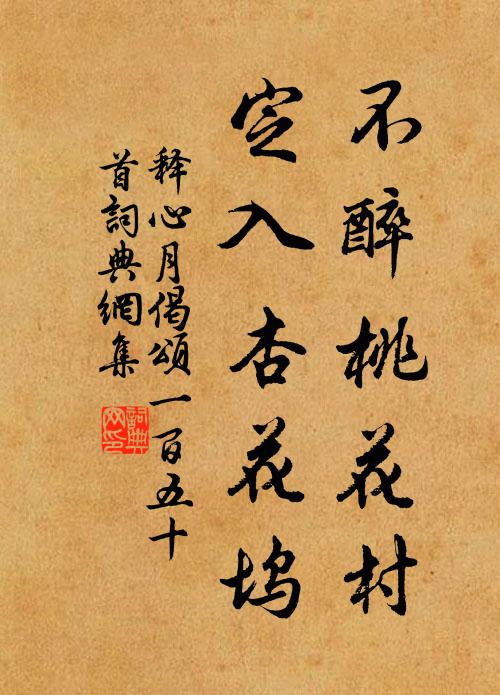 不醉桃花村
定入杏花坞
释心月偈頌一百五十
首詞典網集
詞典网印